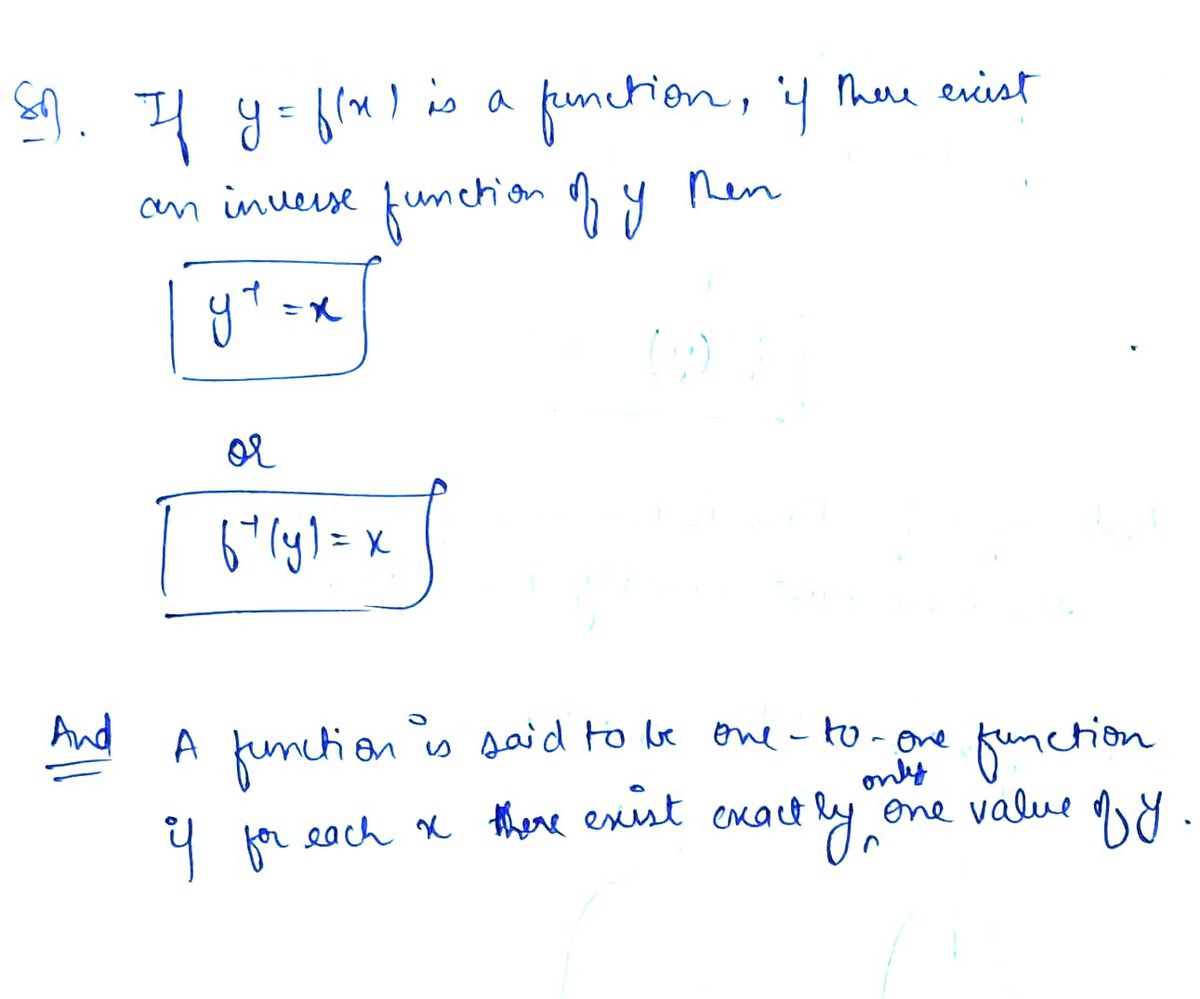 Sol. If y = f(x) is a function, if there exist
an inverse function of y then
y⁻¹ = x
or
f⁻¹(y) = x
And A function is said to be one-to-one function
if for each x there exist exactly only one value of y.